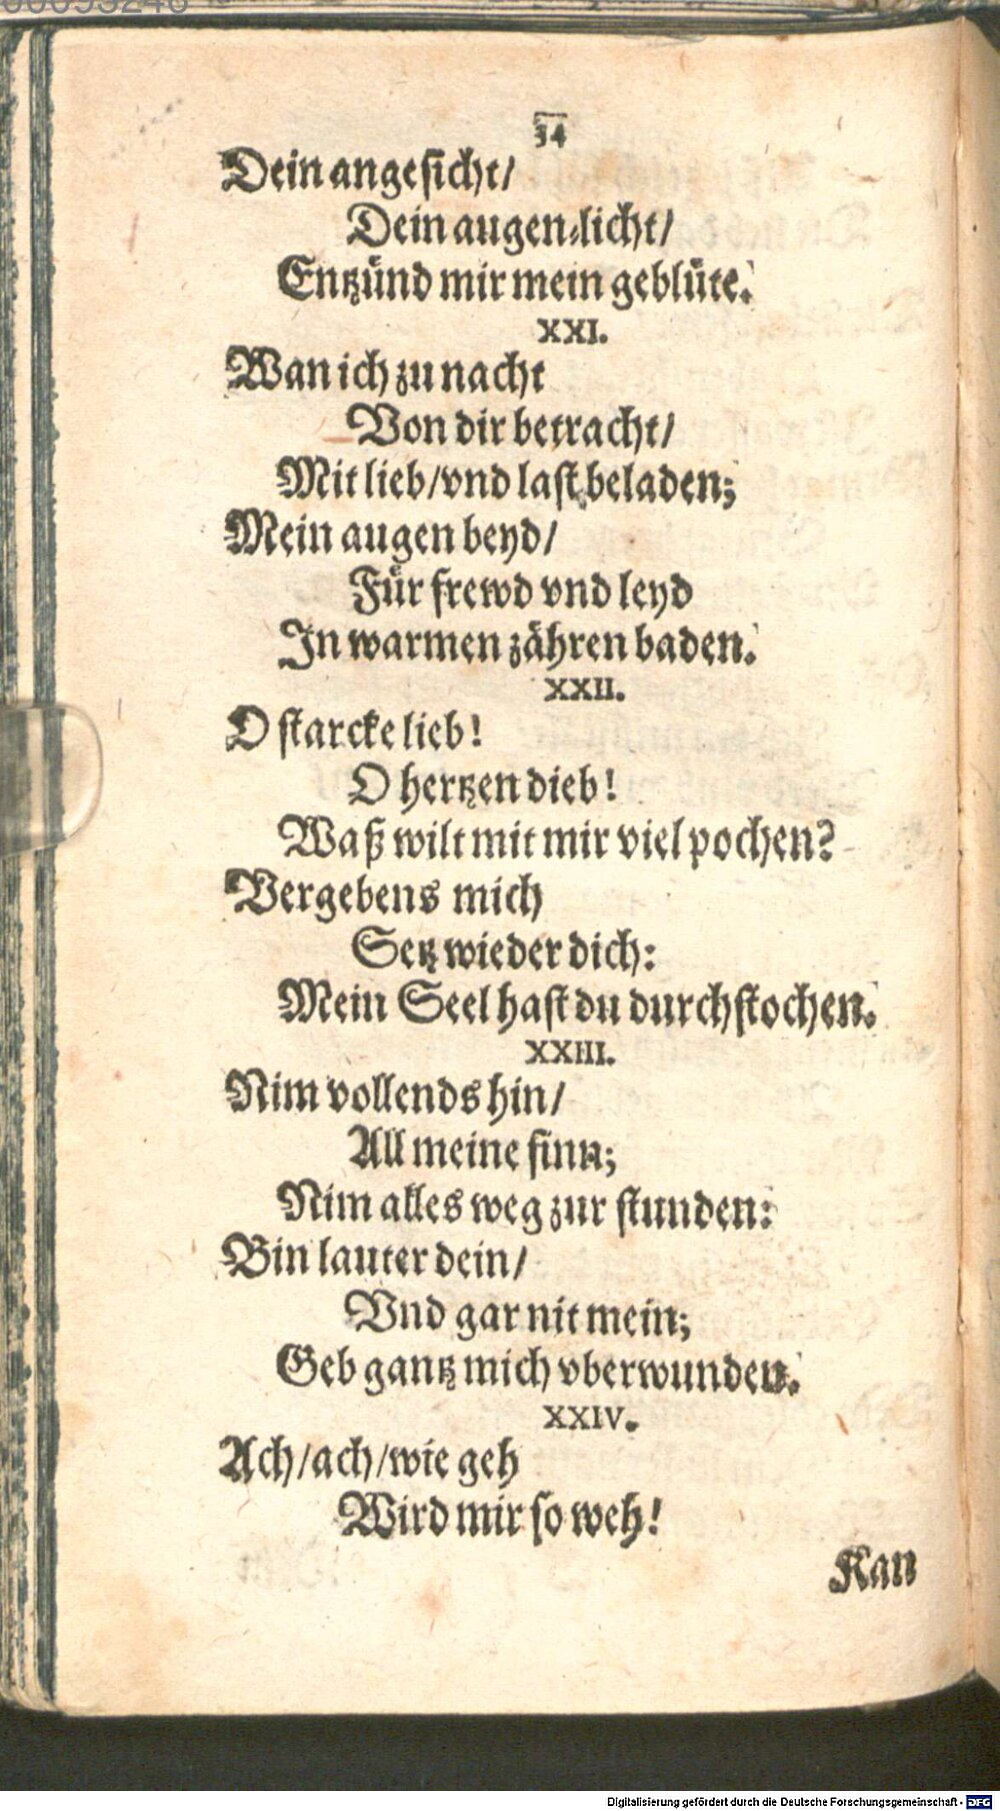 34
Dein angesicht/
Dein augen-licht/
Entzünd mir mein geblüte.
XXI.
Wan ich zu nacht
Von dir betracht/
Mit lieb/vnd last beladen;
Mein augen beyd/
Für frewd vnd leyd
In warmen zähren baden.
XXII.
O starcke lieb!
O hertzen dieb!
Waß wilt mit mir viel pochen?
Vergebens mich
Setz wieder dich:
Mein Seel hast du durchstochen.
XXIII.
Nim vollends hin/
All meine sinn;
Nim alles weg zur stunden:
Bin lauter dein/
Vnd gar nit mein;
Geb gantz mich vberwunden.
XXIV.
Ach/ach/wie geh
Wird mir so weh!
Kan
Digitalisierung gefördert durch die Deutsche Forschungsgemeinschaft - DFG